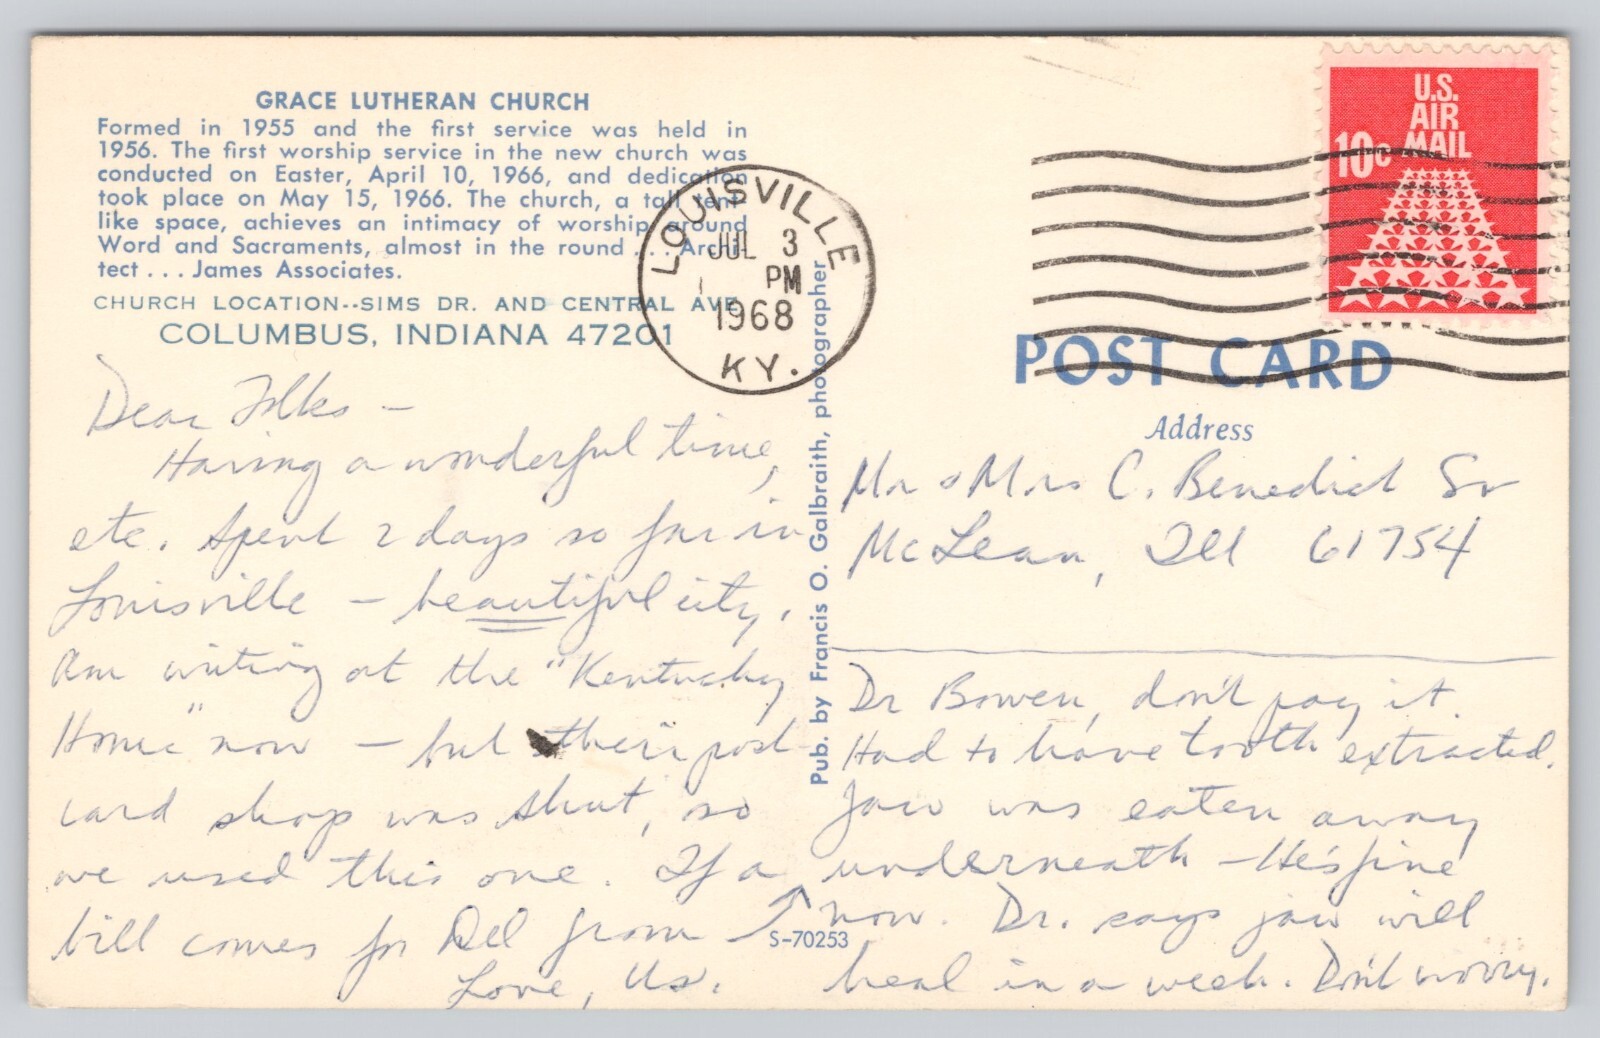 GRACE LUTHERAN CHURCH
Formed in 1955 and the first service was held in
1956. The first worship service in the new church was
conducted on Easter, April 10, 1966, and dedication
took place on May 15, 1966. The church, a tall tent-
like space, achieves an intimacy of worship around
Word and Sacraments, almost in the round . . . Archi-
tect . . . James Associates.
CHURCH LOCATION--SIMS DR. AND CENTRAL AVE.
COLUMBUS, INDIANA 47201
Dear Folks –
Having a wonderful time,
etc. Spent 2 days so far in
Louisville – beautiful city.
Am writing at the "Kentucky
Home" now – but their post
card shop was shut, so
we used this one. If a
bill comes for Del from
Love, Us.
Dr Bowen, don't pay it.
Had to have tooth extracted.
Jaw was eaten away
underneath – He's fine
now. Dr. says jaw will
heal in a week. Don't worry.
S-70253
Pub. by Francis O. Galbraith, photographer
LOUISVILLE
JUL 3
PM
1968
KY.
U.S.
AIR
MAIL
10c
POST CARD
Address
Mr & Mrs C. Benedict Sr
McLean, Ill 61754